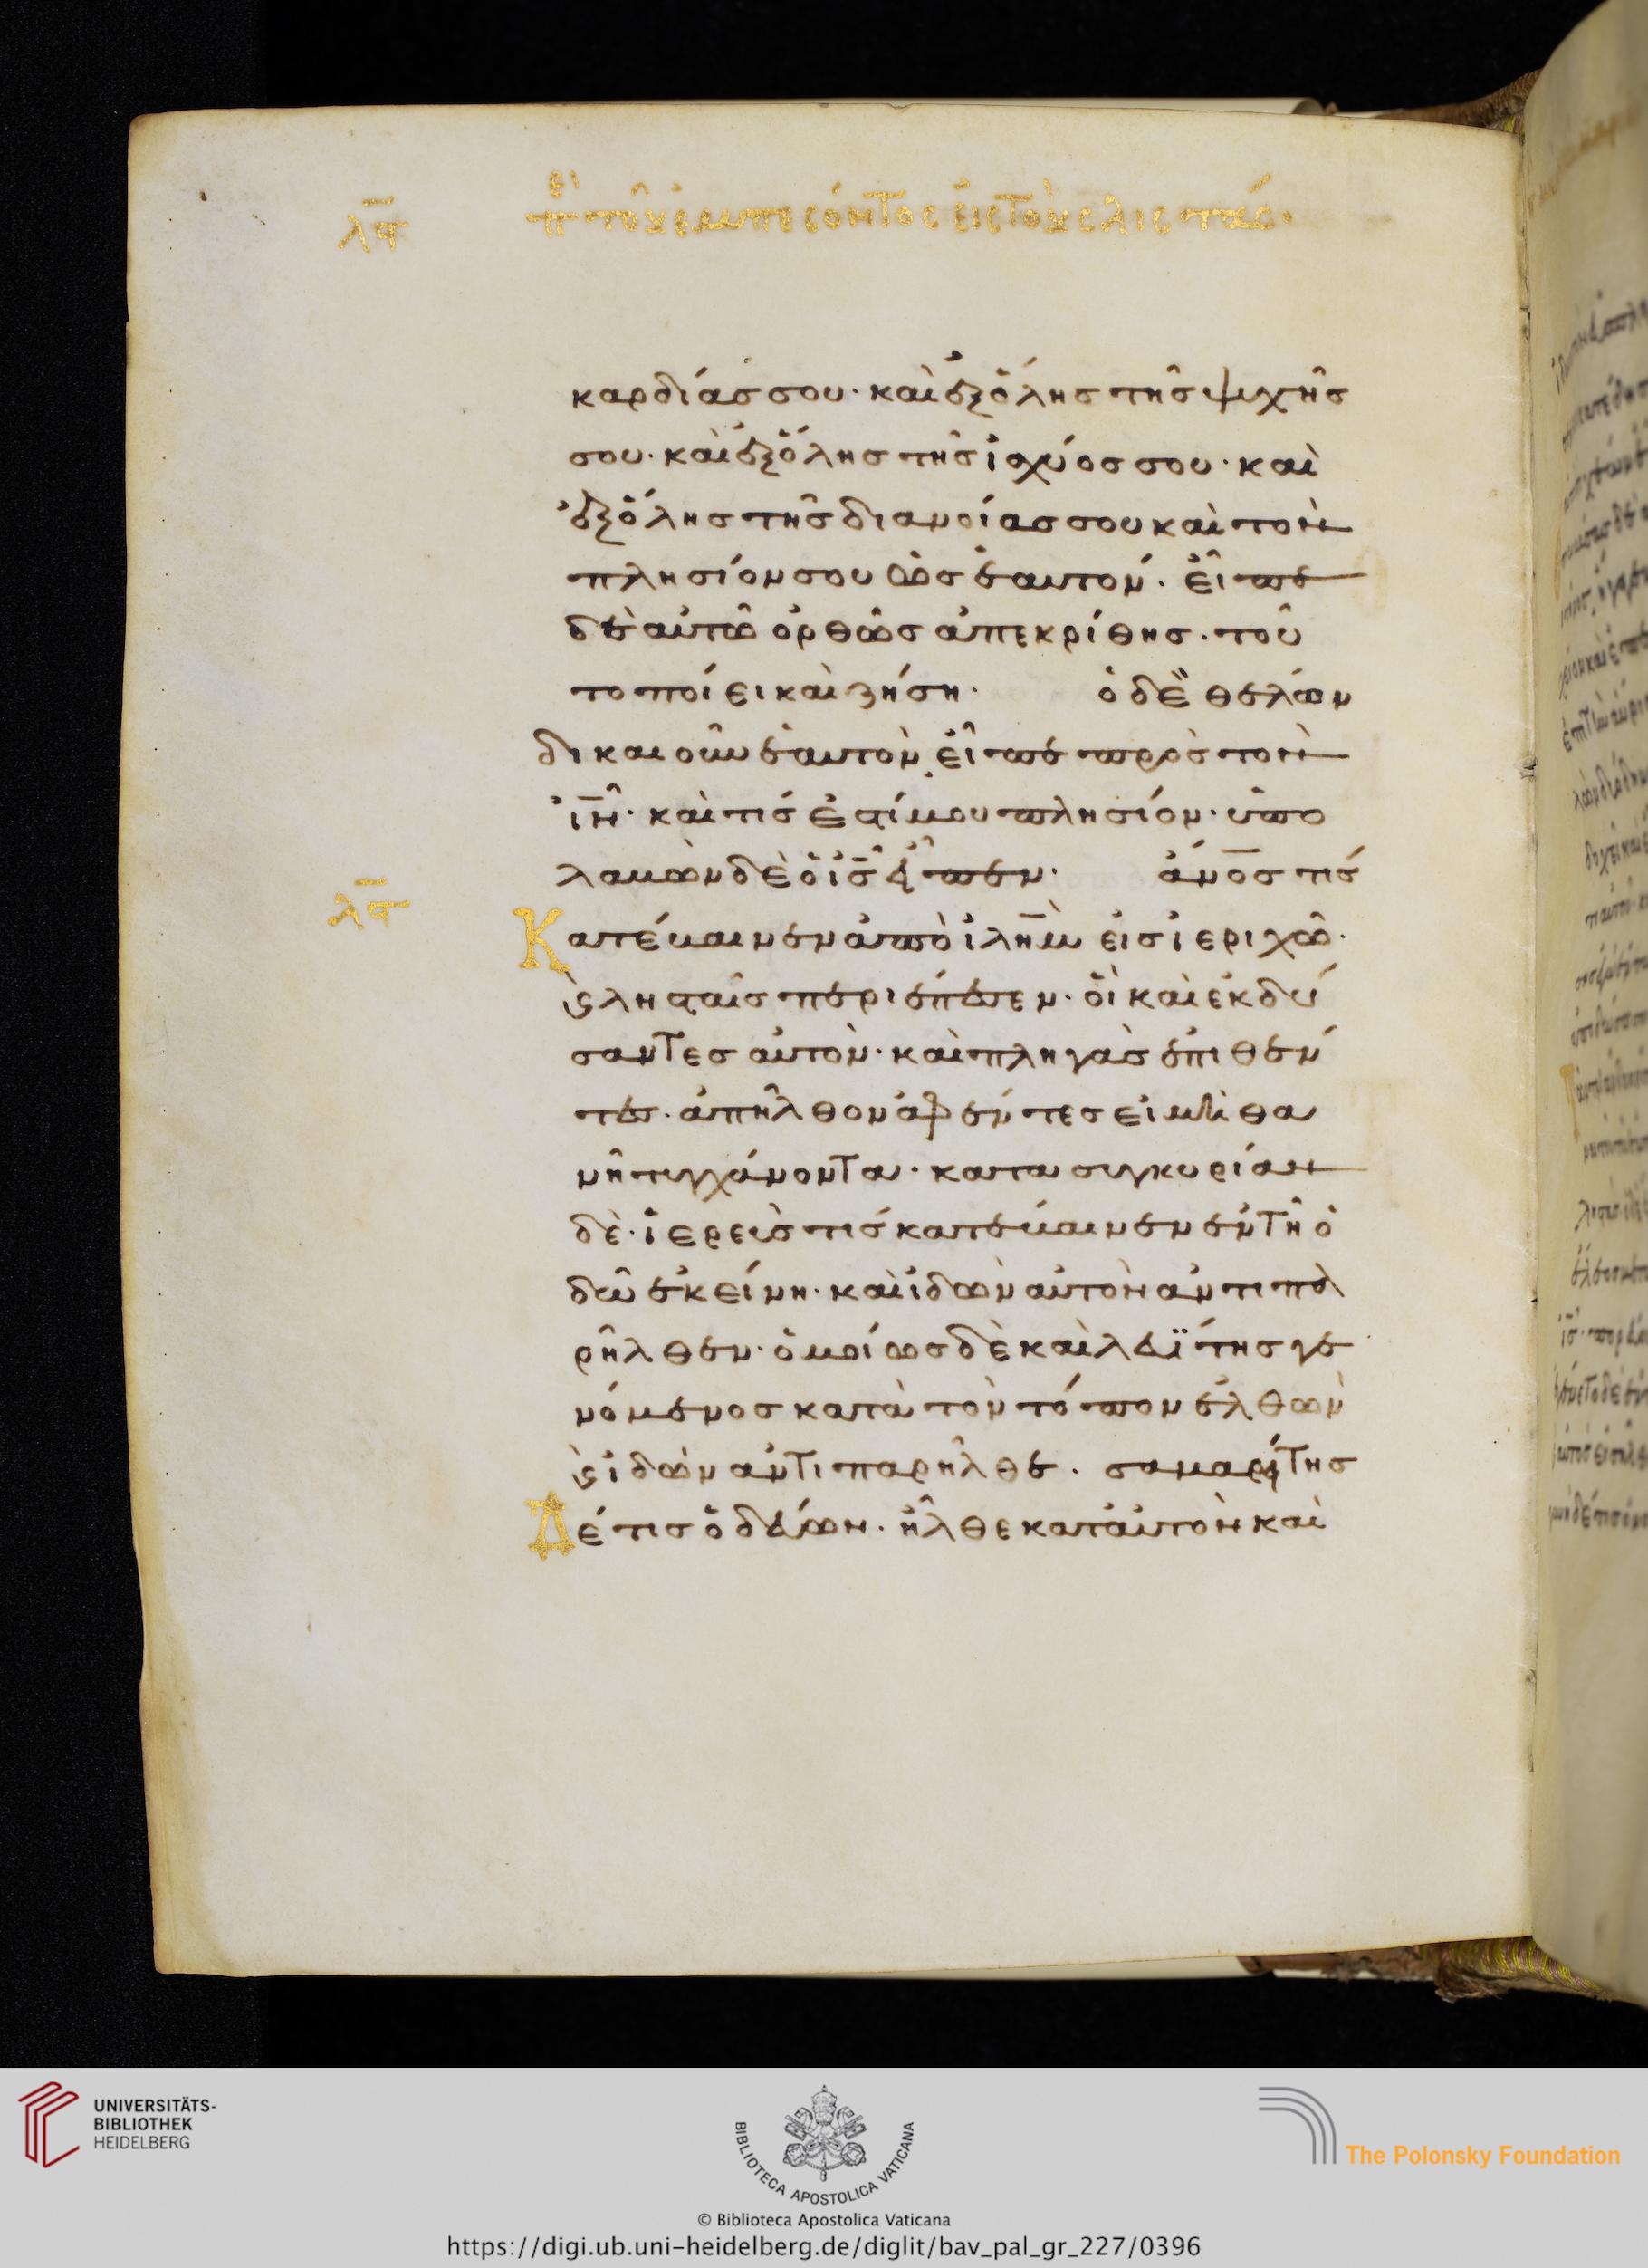 λϛ
περὶ τοῦ ἐμπεσόντος εἰς τοὺς ληστάς·
καρδίας σου· καὶ ἐξ ὅλης τῆς ψυχῆς
σου· καὶ ἐξ ὅλης τῆς ἰσχύος σου· καὶ
ἐξ ὅλης τῆς διανοίας σου καὶ τὸν
πλησίον σου ὡς ἑαυτόν· εἶπε
δὲ αὐτῶ ὀρθῶς ἀπεκρίθης· τοῦ
το ποίει καὶ ζήση· ὁ δὲ θέλων
δικαιοῦν ἑαυτὸν εἶπε πρὸς τὸν
ἰν· καὶ τίς ἐστί μου πλησίον· ὑπο
λαβὼν δὲ ὁ ἰς εἶπεν· ἄνος τίς
λϛ
Κατέβαινεν ἀπὸ ἰλημ εἰς ἱεριχώ·
καὶ λησταῖς περιέπεσεν· οἳ καὶ ἐκδύ
σαντες αὐτὸν· καὶ πληγὰς ἐπιθέν
τες· ἀπῆλθον ἀφέντες ἡμιθα
νῆ τυγχάνοντα· κατα συγκυρίαν
δὲ· ἱερεὺς τίς κατέβαινεν ἐν τῆ ὁ
δῶ ἐκείνη· καὶ ἰδὼν αὐτὸν ἀντιπα
ρῆλθεν· ὁμοίως δὲ καὶ λευΐτης γε
νόμενος κατὰ τὸν τόπον ἐλθὼν
καὶ ἰδὼν ἀντιπαρῆλθε· σαμαρείτης
Δέ τις ὁδεύων· ἦλθε κατ αὐτὸν καὶ
UNIVERSITÄTS-
BIBLIOTHEK
HEIDELBERG
BIBLIOTECA APOSTOLICA VATICANA
© Biblioteca Apostolica Vaticana
The Polonsky Foundation
https://digi.ub.uni-heidelberg.de/diglit/bav_pal_gr_227/0396